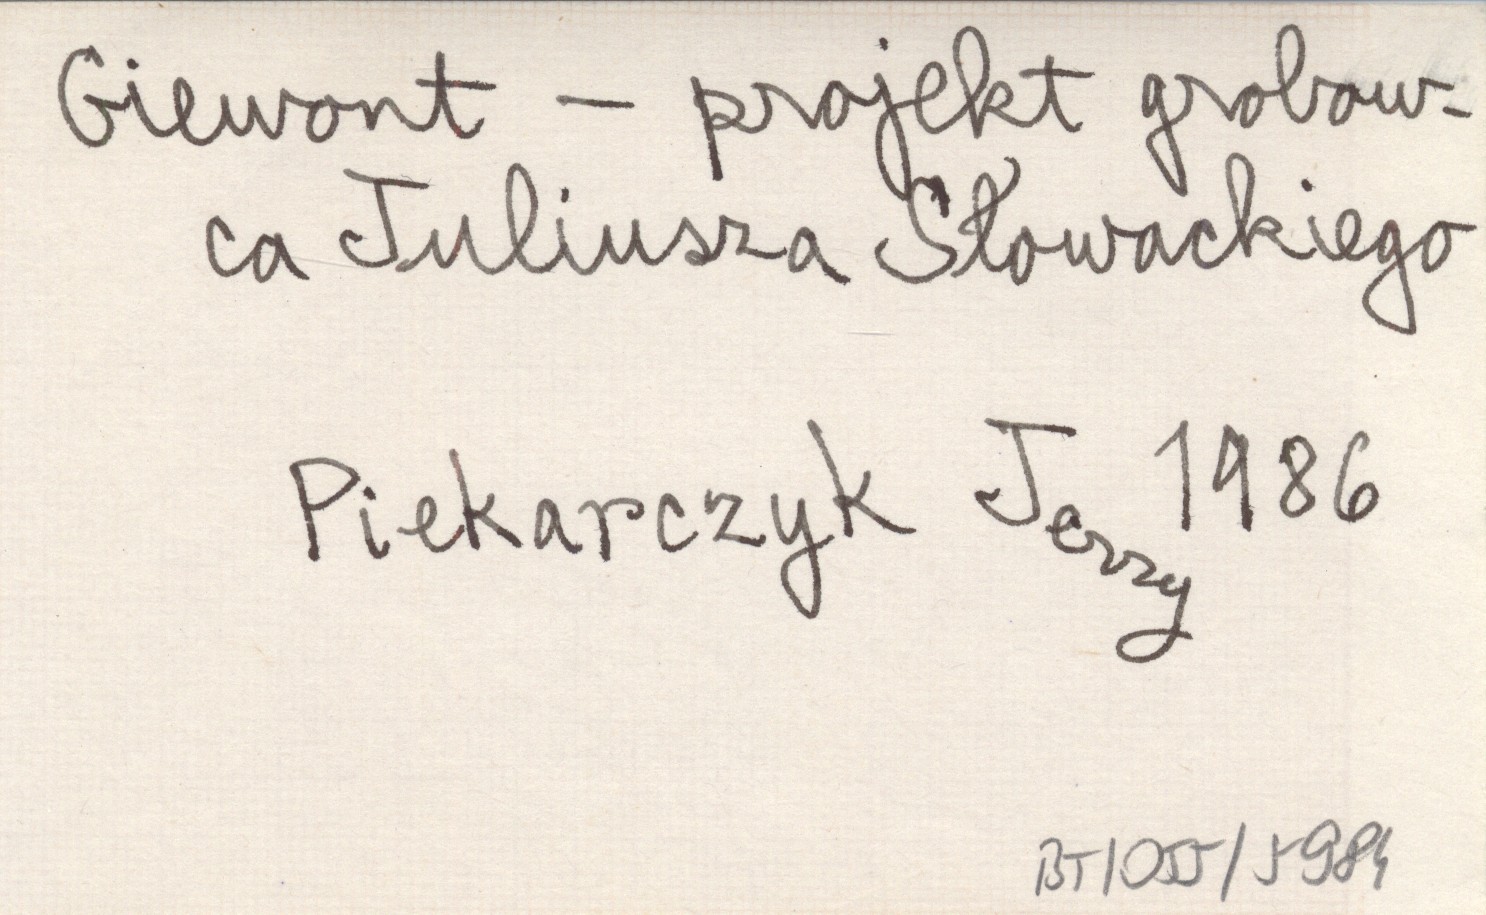 Giewont – projekt grobow-
ca Juliusza Słowackiego
Piekarczyk Jerzy 1986
BT/055/5984